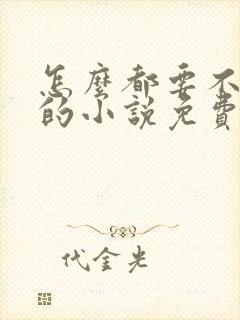 怎麼都要不
的小說免費
代金光